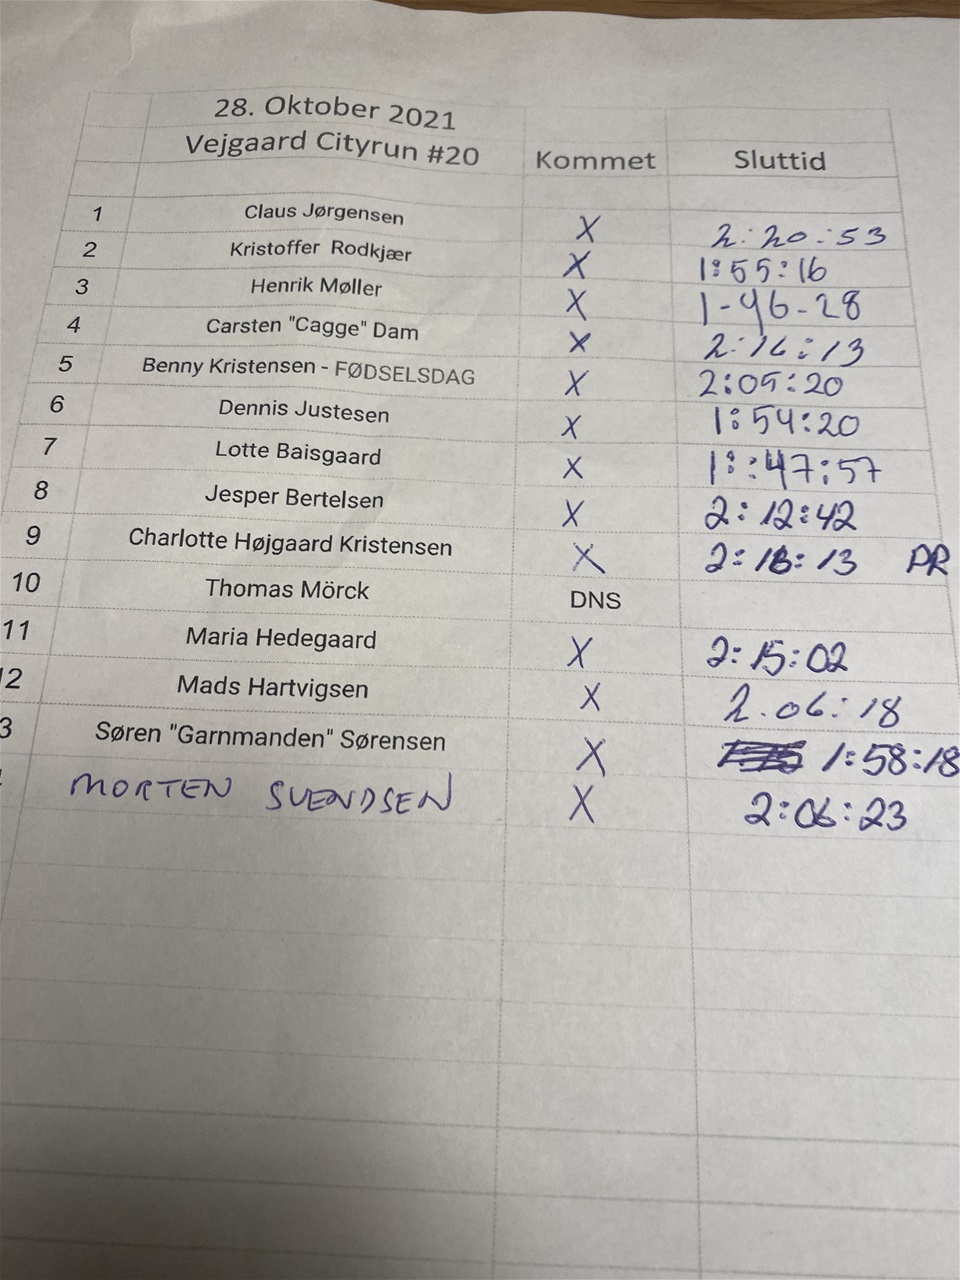 28. Oktober 2021
Vejgaard Cityrun #20 Kommet Sluttid
1 Claus Jørgensen X 2:20:53
2 Kristoffer Rodkjær X 1:55:16
3 Henrik Møller X 1-46-28
4 Carsten "Cagge" Dam X 2:16:13
5 Benny Kristensen - FØDSELSDAG X 2:05:20
6 Dennis Justesen X 1:54:20
7 Lotte Baisgaard X 1::47:57
8 Jesper Bertelsen X 2:12:42
9 Charlotte Højgaard Kristensen X 2:18:13 PR
10 Thomas Mörck DNS
11 Maria Hedegaard X 2:15:02
2 Mads Hartvigsen X 2.06:18
3 Søren "Garnmanden" Sørensen X 1:58:18
MORTEN SVENDSEN X 2:06:23